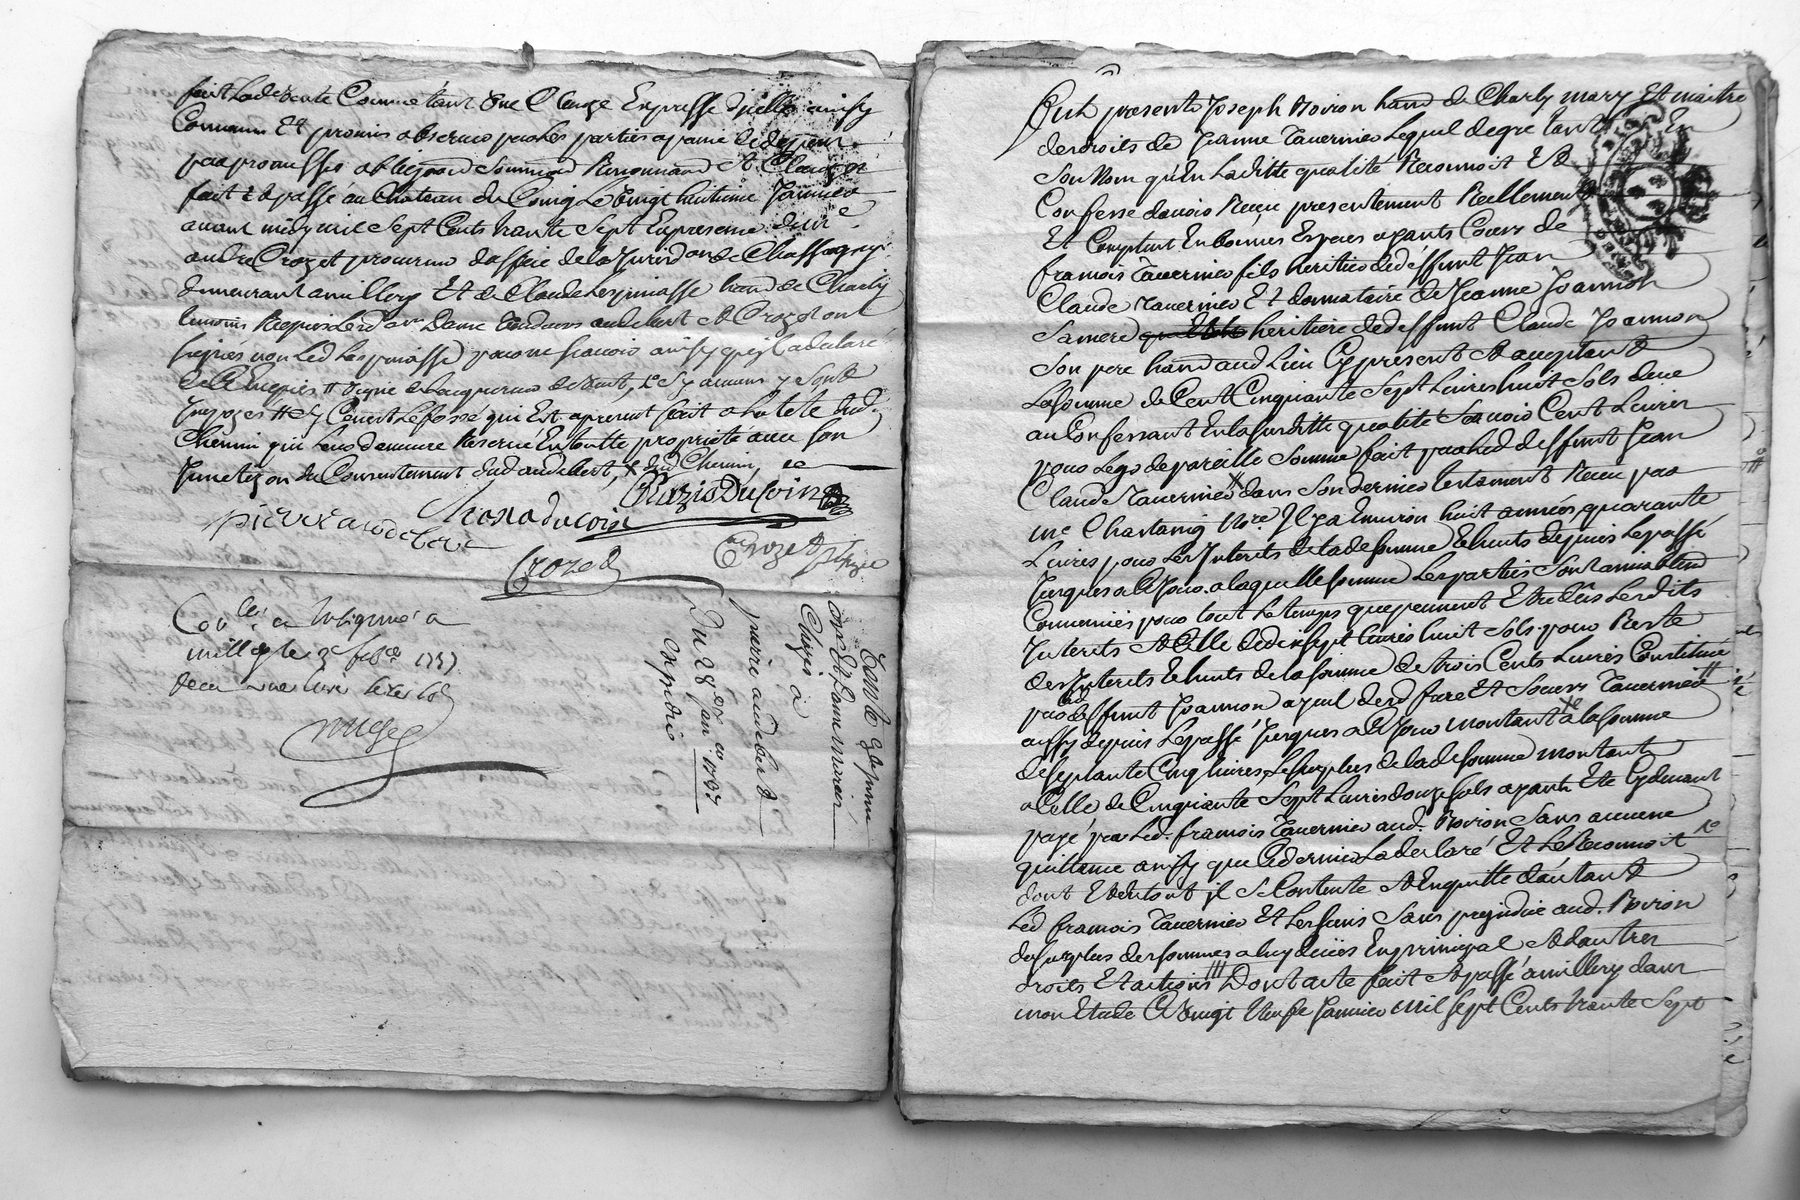 fait Lade vente Comme étant Une Clauze Expresse d'icelle ainsy
Convenu Et promis observer par Les parties a peine de depens
par promesses obligaon Soumission Renonciaon Et Clauzes
fait Et passé au Chateau de Le Vingt huitieme Janvier
avant midy mil Sept Cents trante Sept En presence de me
andre Crozet procureur d'office de la Juridon de Chassagny
demeurant a millery Et de Claude Lespinasse habnt de Charly
temoins Requis Led Dame Vendeurs audebert Et Crozet ont
signés non Led Lespinasse pour ne sçavoir ainsy qu'il a declaré
de Ce Enquis
Et Couvert Le fossé qui Est a present fait a La tete dud.
Chemin qui Leurs demeure Reservé En toutte proprieté avec Son
du Consentement dud audebert, X dud Chemin,
pierre audebert
Crozet
Crozet
Collé en
millery le 3e febr 1737
Vente
Clugis à
pierre audebert
Du 28 janr. 1737
Expedié
Fut present Joseph Boiron habnt de Charly mary Et maitre
des droits de Jeanne Tavernier Lequel de gré tant En
Son Nom qu'En Laditte qualité Reconnoit Et
Confesse d'avoir Reçu presentement Reellement
Et Comptant En bonnes Especes ayants Cours de
francois Tavernier fils heritier de deffunt Jean
Claude Tavernier Et donnataire de Jeanne Joannon
Sa mere heritiere de deffunt Claude Joannon
Son pere habnt aud Lieu Cy present Et acceptant
La Somme de Cent Cinquante Sept Livres huit Sols
au Confessant En La Susditte qualité Sçavoir Cent Livres
pour Legs de pareille Somme fait par Led deffunt Jean
Claude Tavernier X dans Son dernier testament Reçu par
me Chastaing Nore Il y a Environ huit années, quarante
Livres pour Les Interets de lade Somme Echeuts depuis Le passé
Jusques a Ce Jour. a laquelle Somme Les parties Sont amiablement
Convenües pour tout Le temps que peuvent Etre dûs Lesdits
Interets Et Celle de dix Sept Livres huit Sols pour Reste
des Interets Echeuts de la Somme de trois Cents Livres Constituée
par led deffunt Joannon ayeul desd frere Et Soeurs Tavernier
aussy depuis Le passé Jusques a Ce Jour montant a la Somme
de Septante Cinq Livres, Le Surplus de lade Somme montant
a Celle de Cinquante Sept Livres douze Sols ayant Eté Cy devant
payé par Led. francois Tavernier aud. Boiron Sans aucune
quittance ainsy que Ce dernier L'a declaré Et Le Reconnoit
dont Et du tout il Se Contente Et En quitte d'autant
Led francois Tavernier Et Les Siens Sans prejudice aud. Boiron
du Surplus des Sommes a luy deües En principal Et d'autres
droits Et actions Dont acte fait Et passé a millery dans
mon Etude Ce Vingt Neufe Janvier mil Sept Cents trante Sept